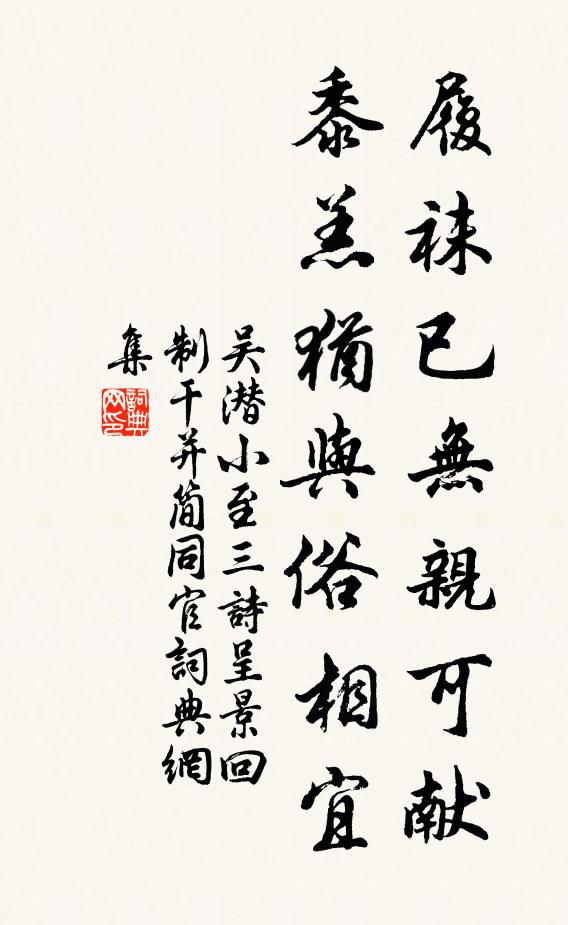 履袜已無親可献
黍羔猶與俗相宜
吴潜小至三詩呈景回
制干并简同官詞典網
集
詞典
网印